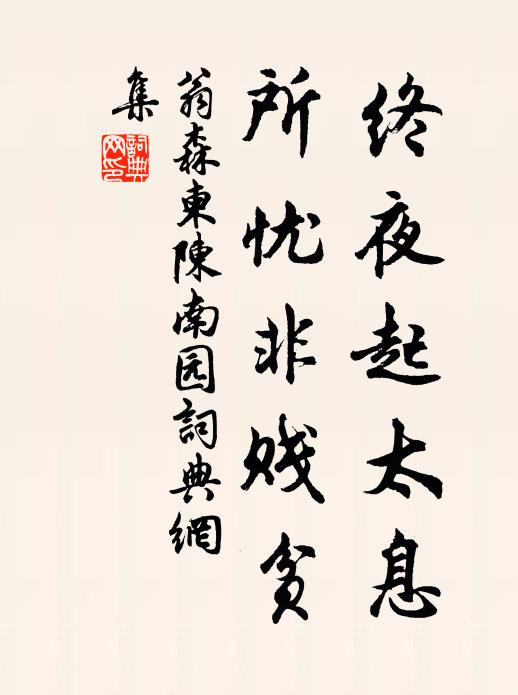 终夜起太息
所忧非贱贫
翁森東陳南园詞典網
集
詞典
网印